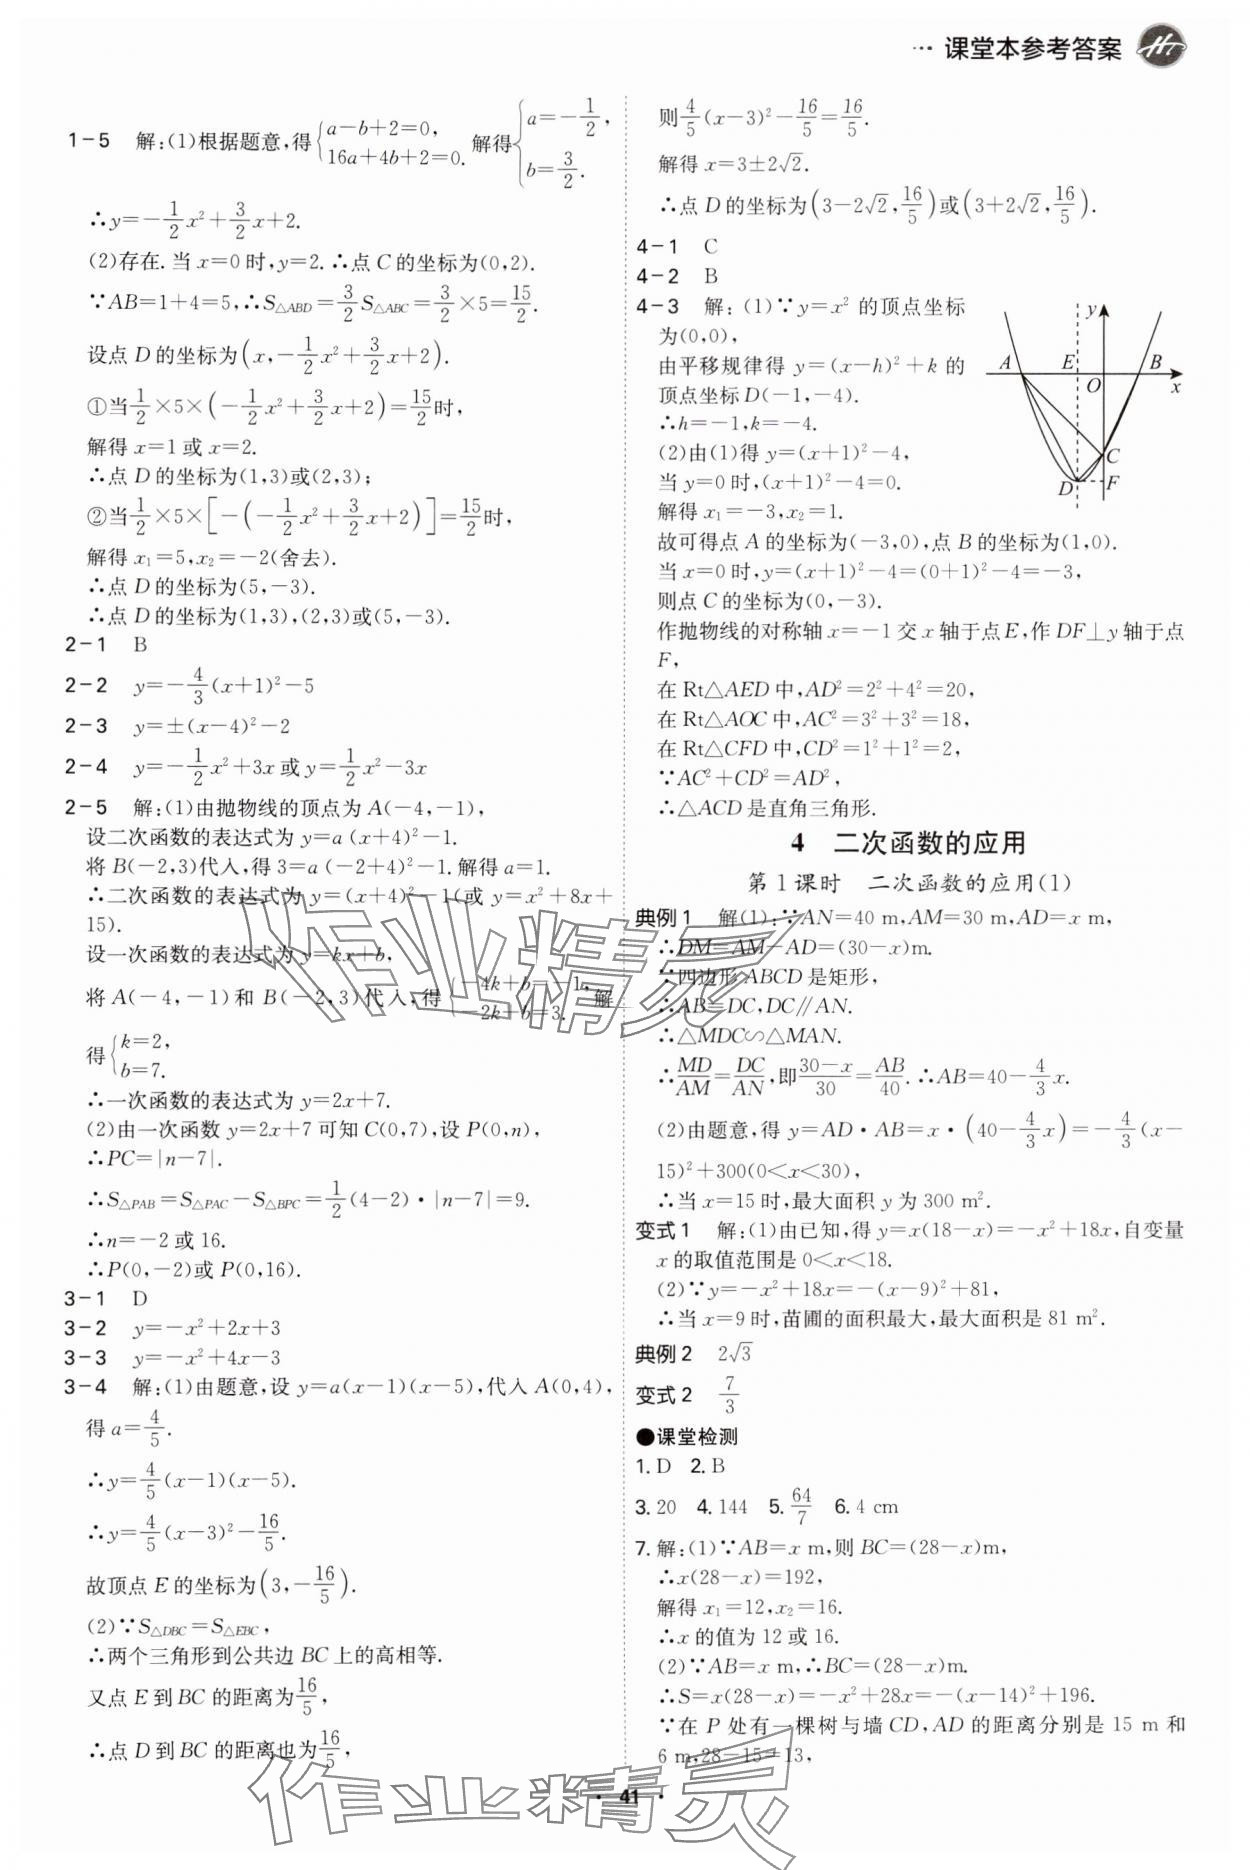 ··· 课堂本参考答案
1-5 解:(1)根据题意,得{a-b+2=0, 16a+4b+2=0. 解得{a=-1/2, b=3/2.
∴y=-1/2x²+3/2x+2.
(2)存在. 当x=0时,y=2. ∴点C的坐标为(0,2).
∵AB=1+4=5,∴S△ABD=3/2S△ABC=3/2×5=15/2.
设点D的坐标为(x,-1/2x²+3/2x+2).
①当1/2×5×(-1/2x²+3/2x+2)=15/2时,
解得x=1或x=2.
∴点D的坐标为(1,3)或(2,3);
②当1/2×5×[-(-1/2x²+3/2x+2)]=15/2时,
解得x₁=5,x₂=-2(舍去).
∴点D的坐标为(5,-3).
∴点D的坐标为(1,3),(2,3)或(5,-3).
2-1 B
2-2 y=-4/3(x+1)²-5
2-3 y=±(x-4)²-2
2-4 y=-1/2x²+3x或y=1/2x²-3x
2-5 解:(1)由抛物线的顶点为A(-4,-1),
设二次函数的表达式为y=a(x+4)²-1.
将B(-2,3)代入,得3=a(-2+4)²-1.解得a=1.
∴二次函数的表达式为y=(x+4)²-1(或y=x²+8x+
15).
设一次函数的表达式为y=kx+b,
将A(-4,-1)和B(-2,3)代入,得{-4k+b=-1, -2k+b=3. 解
得{k=2, b=7.
∴一次函数的表达式为y=2x+7.
(2)由一次函数y=2x+7可知C(0,7),设P(0,n),
∴PC=|n-7|.
∴S△PAB=S△PAC-S△BPC=1/2(4-2)·|n-7|=9.
∴n=-2或16.
∴P(0,-2)或P(0,16).
3-1 D
3-2 y=-x²+2x+3
3-3 y=-x²+4x-3
3-4 解:(1)由题意,设y=a(x-1)(x-5),代入A(0,4),
得a=4/5.
∴y=4/5(x-1)(x-5).
∴y=4/5(x-3)²-16/5.
故顶点E的坐标为(3,-16/5).
(2)∵S△DBC=S△EBC,
∴两个三角形到公共边BC上的高相等.
又点E到BC的距离为16/5,
∴点D到BC的距离也为16/5,
则4/5(x-3)²-16/5=16/5.
解得x=3±2√2.
∴点D的坐标为(3-2√2,16/5)或(3+2√2,16/5).
4-1 C
4-2 B
4-3 解:(1)∵y=x²的顶点坐标
为(0,0),
由平移规律得y=(x-h)²+k的
顶点坐标D(-1,-4).
∴h=-1,k=-4.
(2)由(1)得y=(x+1)²-4,
当y=0时,(x+1)²-4=0.
解得x₁=-3,x₂=1.
y
A E B
O x
C
D F
故可得点A的坐标为(-3,0),点B的坐标为(1,0).
当x=0时,y=(x+1)²-4=(0+1)²-4=-3,
则点C的坐标为(0,-3).
作抛物线的对称轴x=-1交x轴于点E,作DF⊥y轴于点
F,
在Rt△AED中,AD²=2²+4²=20,
在Rt△AOC中,AC²=3²+3²=18,
在Rt△CFD中,CD²=1²+1²=2,
∵AC²+CD²=AD²,
∴△ACD是直角三角形.
4 二次函数的应用
第1课时 二次函数的应用(1)
典例1 解(1):∵AN=40 m,AM=30 m,AD=x m,
∴DM=AM-AD=(30-x)m.
∵四边形ABCD是矩形,
∴AB=DC,DC∥AN.
∴△MDC∽△MAN.
∴MD/AM=DC/AN,即(30-x)/30=AB/40. ∴AB=40-4/3x.
(2)由题意,得y=AD·AB=x·(40-4/3x)=-4/3(x-
15)²+300(0<x<30),
∴当x=15时,最大面积y为300 m².
变式1 解:(1)由已知,得y=x(18-x)=-x²+18x,自变量
x的取值范围是0<x<18.
(2)∵y=-x²+18x=-(x-9)²+81,
∴当x=9时,苗圃的面积最大,最大面积是81 m².
典例2 2√3
变式2 7/3
●课堂检测
1. D 2. B
3. 20 4. 144 5. 64/7 6. 4 cm
7. 解:(1)∵AB=x m,则BC=(28-x)m,
∴x(28-x)=192,
解得x₁=12,x₂=16.
∴x的值为12或16.
(2)∵AB=x m,∴BC=(28-x)m.
∴S=x(28-x)=-x²+28x=-(x-14)²+196.
∵在P处有一棵树与墙CD,AD的距离分别是15 m和
6 m,28-15=13,
· 41 ·
作业精灵
作业精灵